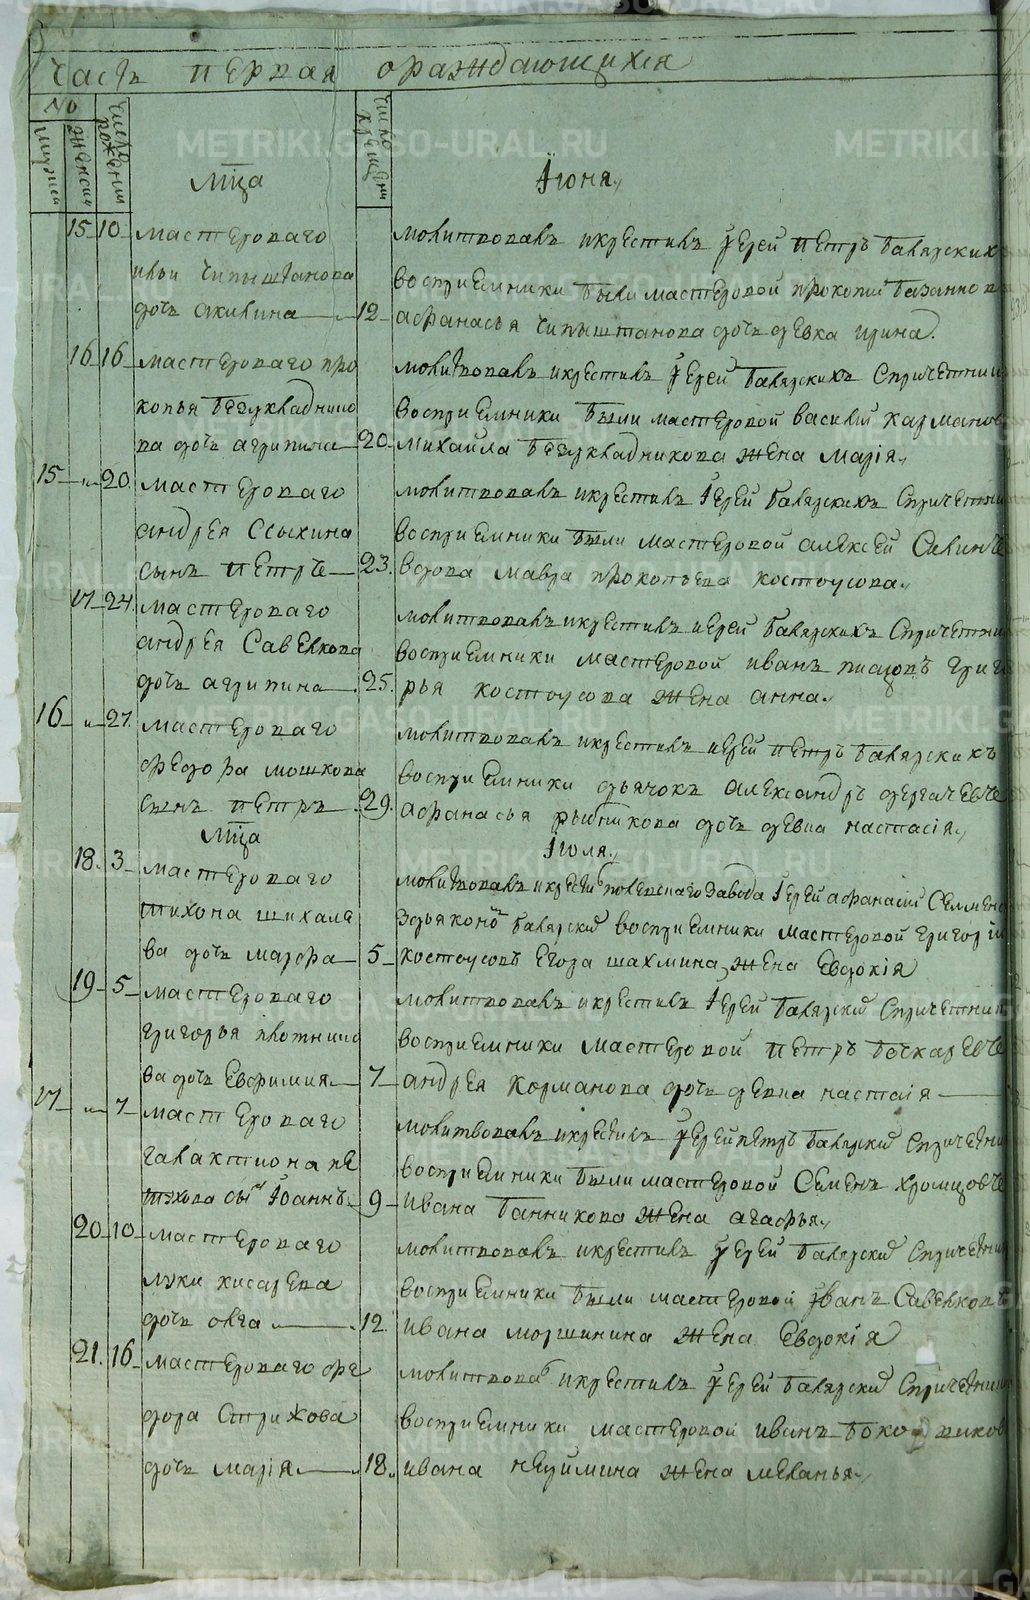 часть первая ораждающихся
No
мужеска
женска
число рождения
число крещения
мца
Іюня,
15 10 мастероваго
ильи чипыштанова
дочь акилина 12
молитвовалъ икрестилъ Іерей петръ балярскихъ
восприемники были мастеровой прокопий
афанасья чипыштанова дочь девка ирина.
16 16 мастероваго про
копья безукладнико
ва дочь агрипина 20
молитвовалъ икрестилъ Іерей балярскихъ спричетни
восприемники были мастеровой василий карманов
михайла безукладникова жена марія,
15 20 мастероваго
андрея ссыхина
сынъ петръ 23.
молитвовалъ икрестилъ Іерей балярскихъ спричетни
восприемники были мастеровой алексей
вдова мавра прокопьева костоусова,
17 24. мастероваго
андрея савелкова
дочь агрипина 25.
молитвовалъ икрестилъ иерей балярскихъ спричетни
восприемники мастеровой иванъ григо
рья костоусова жена анна.
16 27. мастероваго
федора мошкова
сынъ петръ 29.
молитвовалъ икрестилъ иерей петръ балярскихъ
восприемники дьячокъ александръ
афанасья рыбникова дочь девка настасія,
мца
Іюля,
18. 3 мастероваго
тихона шихале
ва дочь марфа 5
молитвовалъ икрести полевскаго завода Іерей афанасий
балярский восприемники мастеровой григорий
костоусовъ егора шахмина жена евдокія
19 5 мастероваго
григорья плотнико
ва дочь евфимия 7
молитвовалъ икрестилъ Іерей балярский спричетни
восприемники мастеровой петръ
андрея карманова дочь девка настасія
17 7 мастероваго
галактиона пе
тухова сынъ Іоаннъ 9
молитвовалъ икрестилъ Іерей петръ балярский спричетни
восприемники были мастеровой семенъ
ивана банникова жена агафья,
20 10 мастероваго
луки кисарева
дочь олга 12.
молитвовалъ икрестилъ Іерей балярский спричетни
восприемники были мастеровой Іванъ савелковъ
ивана моршинина жена евдокія
21. 16 мастероваго фе
дора стрижова
дочь марія 18.
молитвовалъ икрестилъ Іерей балярский спричетни
восприемники мастеровой иванъ
ивана неуймина жена меланья,
METRIKI.GASO-URAL.RU